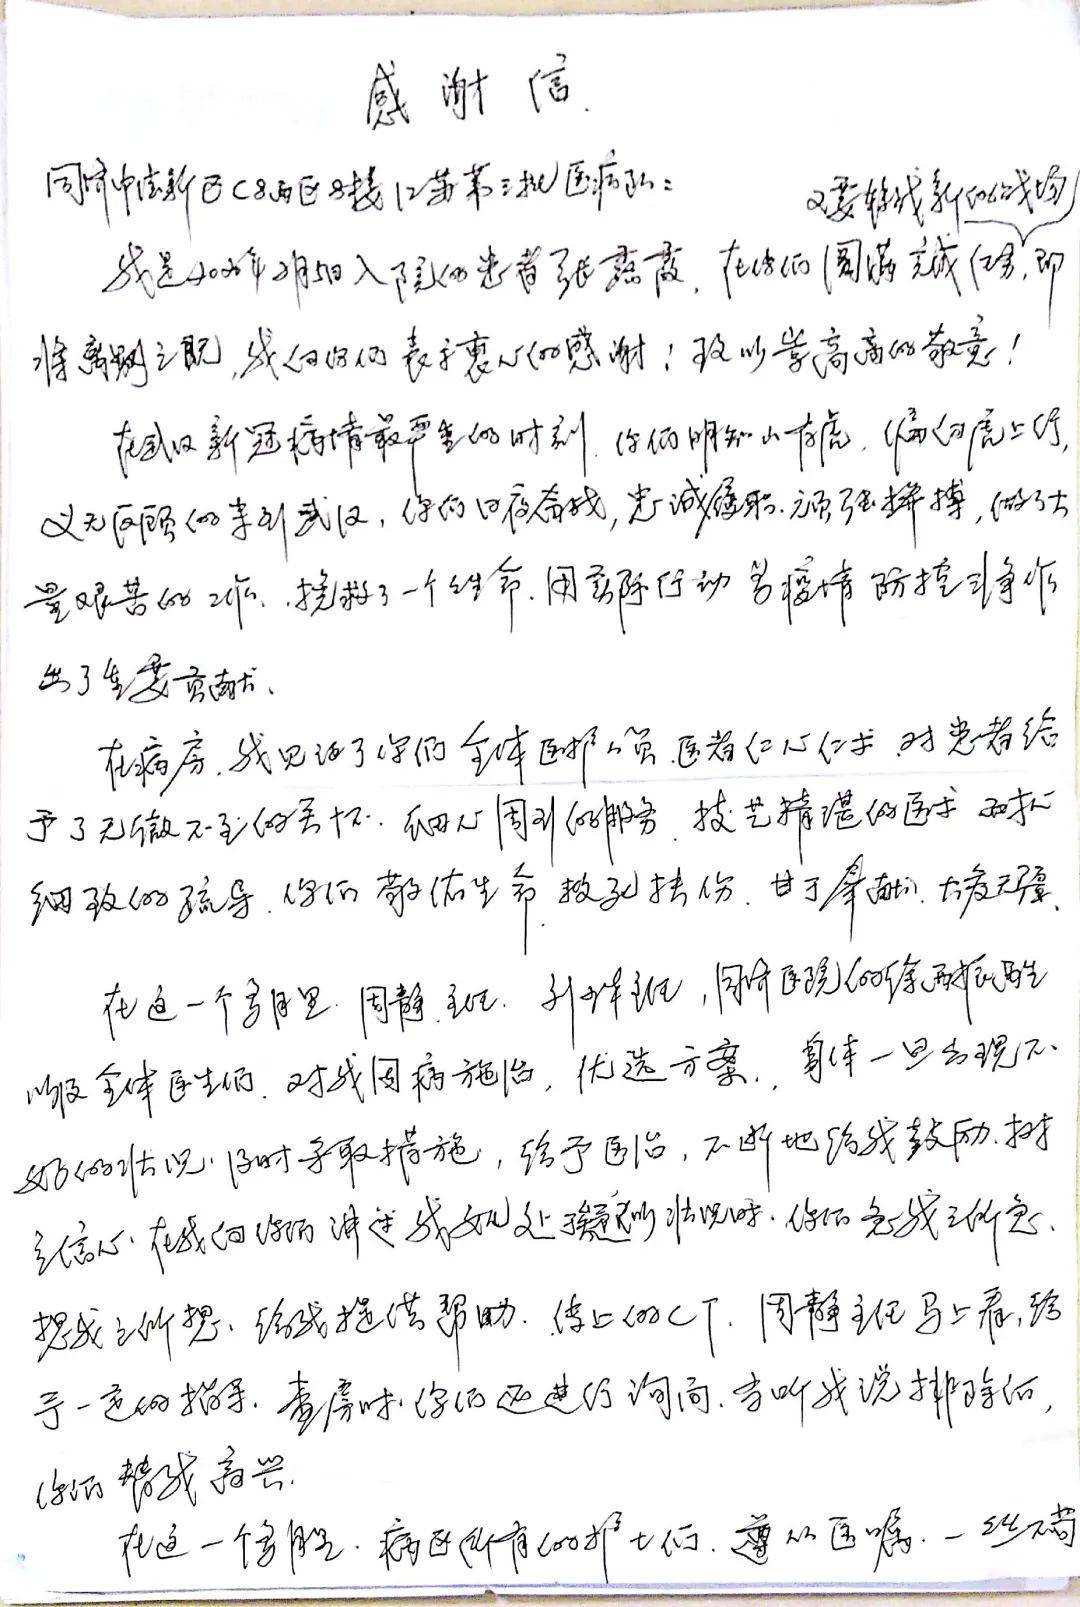 感谢信
同济中法新区C8西区8楼江苏第三批医疗队：
又要转战新的战场
我是2020年2月5日入院的患者张 霞，在你们圆满完成任务，即
将离别之际，我向你们表示衷心的感谢！致以崇高的敬意！
在武汉新冠病情最严重的时刻，你们明知山有虎，偏向虎上行，
义无反顾的来到武汉，你们日夜奋战，忠诚履职，顽强拼搏，做了大
量艰苦的工作，挽救了一个个生命，用实际行动为疫情防控斗争作
出了重要贡献。
在病房，我见证了你们全体医护人员，医者仁心仁术，对患者给
予了无微不至的关怀，细心周到的服务，技艺精湛的医术，耐心
细致的疏导，你们敬佑生命，救死扶伤，甘于奉献，大爱无疆。
在这一个多月里，周静主任， 主任，同济医院的徐 医生
以及全体医生们，对我因病施治，优选方案，身体一旦出现不
好的状况，及时采取措施，给予医治，不断地给我鼓励，树
立信心，在我向你们讲述我女儿处于疑似状况时，你们急我之所急，
想我之所想，给我提供帮助，传上的CT，周静主任马上看，给
予一定的指导，查房时，你们还进行询问，当听我说排除后，
你们替我高兴。
在这一个多月里，病区所有的护士们，遵从医嘱，一丝不苟